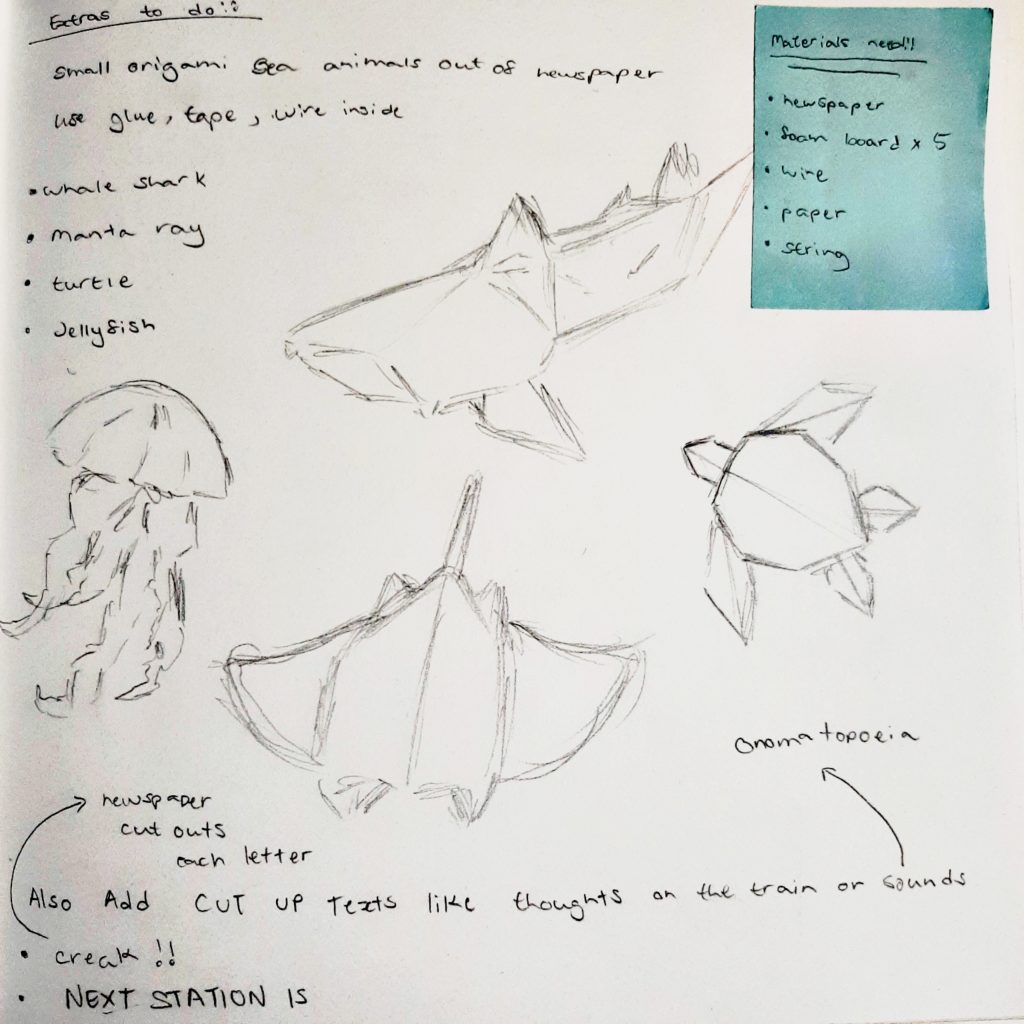 Extras to do!!
Small origami sea animals out of newspaper
use glue, tape, wire inside
• whale shark
• manta ray
• turtle
• Jellyfish
Materials need!!
• newspaper
• foam board x 5
• wire
• paper
• string
Onomatopoeia
newspaper
cut outs
each letter
Also Add CUT UP Texts like thoughts on the train or sounds
• creak !!
• NEXT STATION IS